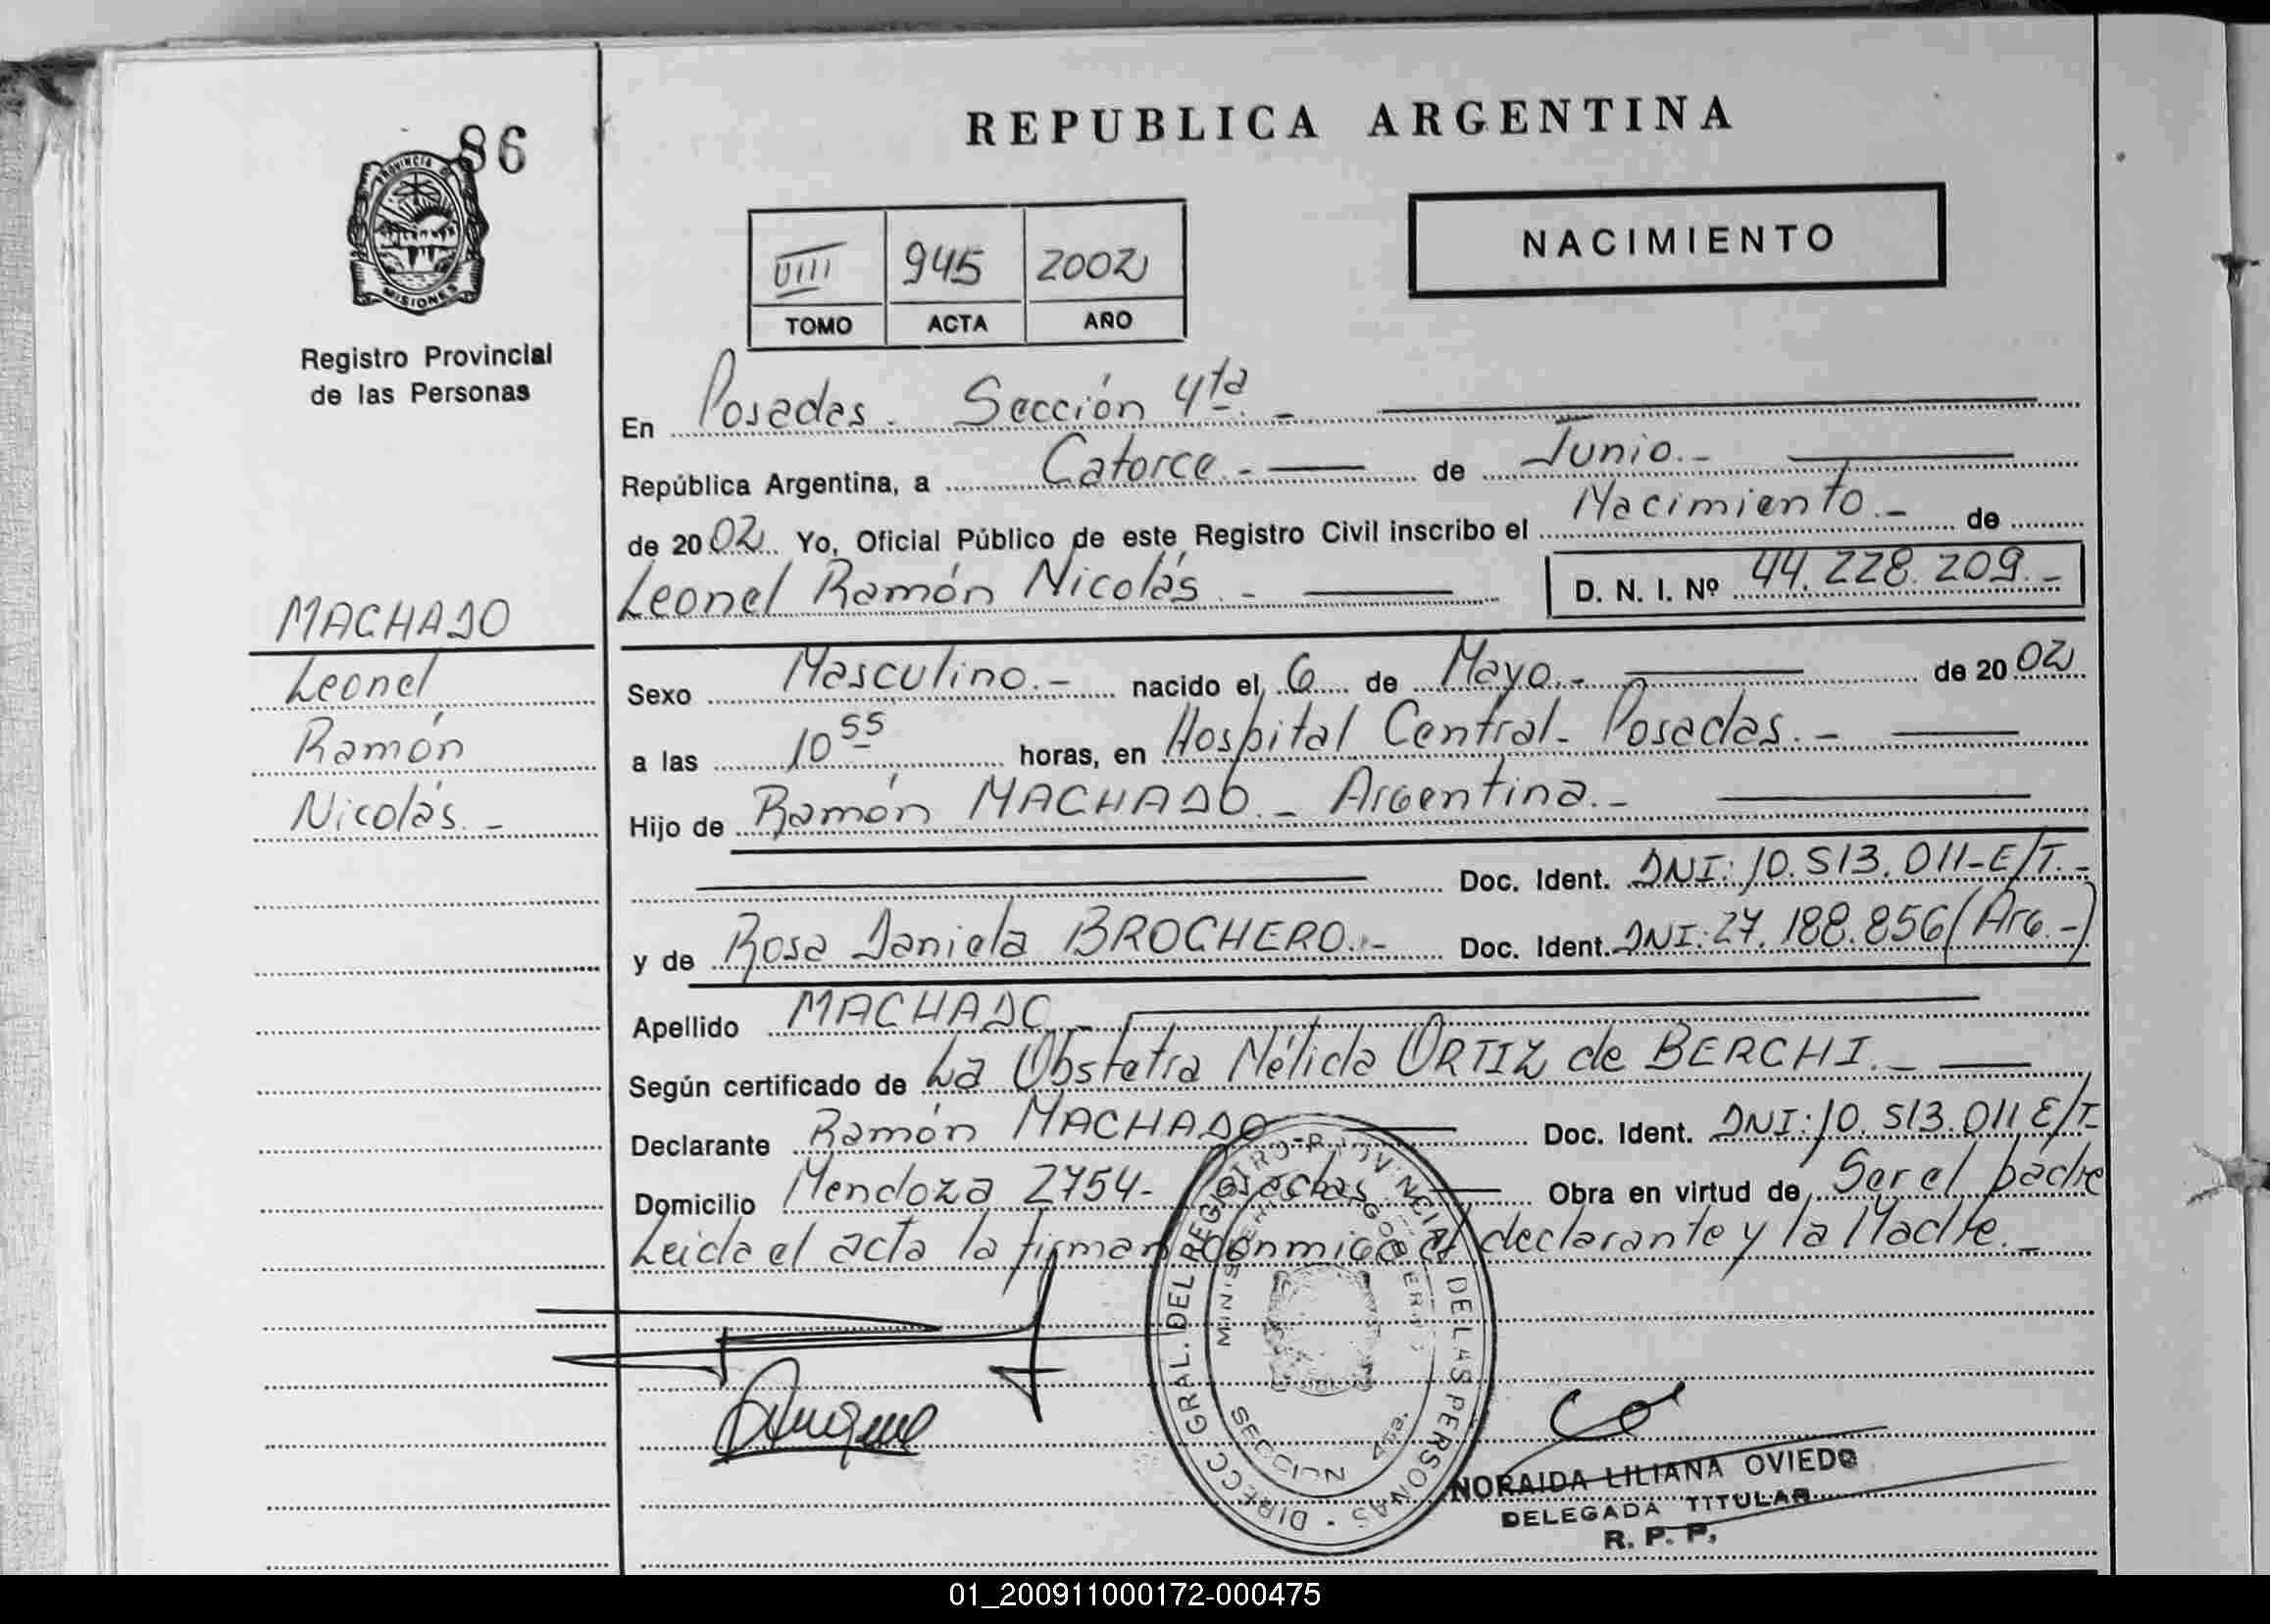 86
PROVINCIA DE
MISIONES
Registro Provincial
de las Personas
REPUBLICA ARGENTINA
NACIMIENTO
VIII 945 2002
TOMO ACTA AÑO
En Posadas. Sección 4ta. -
República Argentina, a Catorce. - de Junio. -
de 2002. Yo, Oficial Público de este Registro Civil inscribo el Nacimiento. - de
Leonel Ramón Nicolás. - D. N. I. Nº 44.228.209. -
MACHADO
Leonel
Ramón
Nicolás. -
Sexo Masculino. - nacido el 6 de Mayo. - de 2002
a las 10 55 horas, en Hospital Central - Posadas. -
Hijo de Ramón MACHADO. - Argentina. -
Doc. Ident. DNI: 10.513.011-E/T. -
y de Rosa Daniela BROCHERO. - Doc. Ident. DNI: 27.188.856 (Arg. -)
Apellido MACHADO -
Según certificado de La Obstetra Nélida ORTIZ de BERCHI. -
Declarante Ramón MACHADO Doc. Ident. DNI: 10.513.011 E/T
Domicilio Mendoza 2754 - Posadas Obra en virtud de Ser el padre
Leida el acta la firman conmigo el declarante y la Madre. -
DIRECC GRAL. DEL REGISTRO PROVINCIAL DE LAS PERSONAS
MINISTERIO GOBIERNO
SECCION 4ta.
NORAIDA LILIANA OVIEDO
DELEGADA TITULAR
R. P. P.
01_200911000172-000475